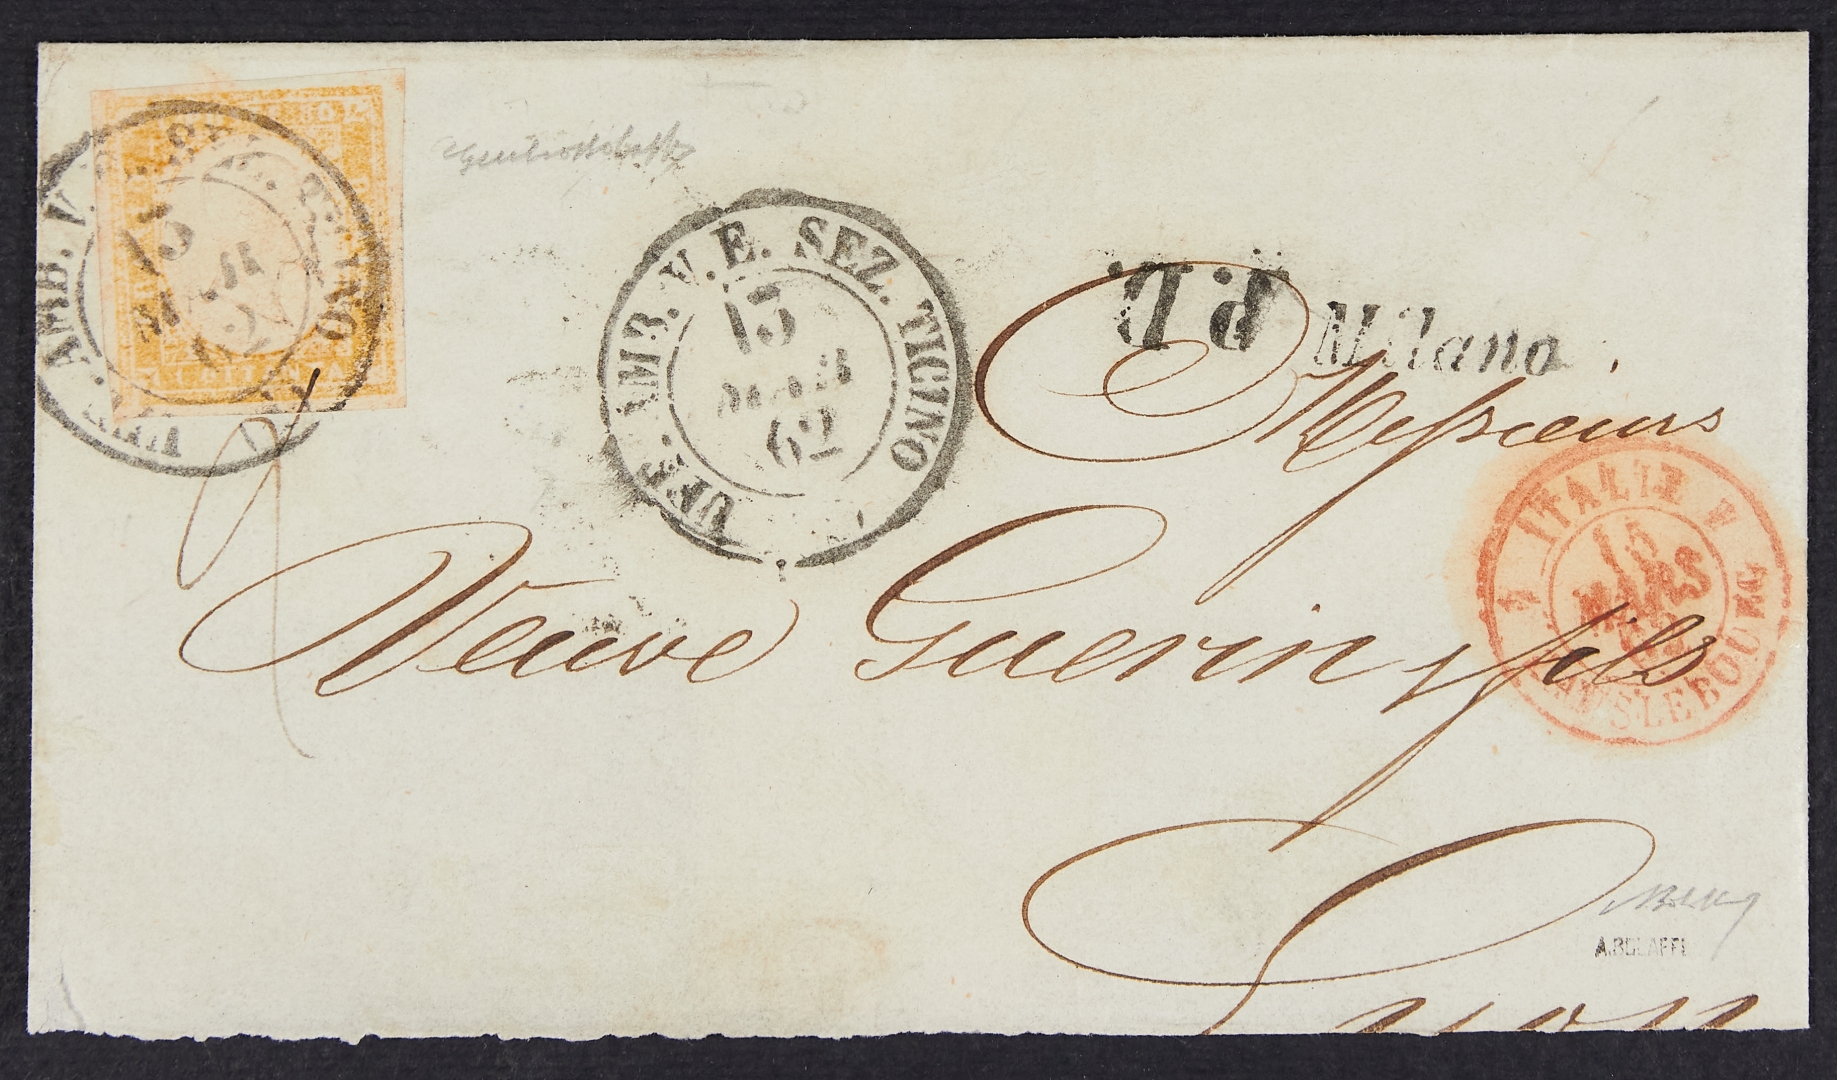 UFF. AMB. V.E. SEZ. TICINO
13
MAR
62
UFF. AMB. V.
TICINO
13
62
P.D.
Milano
Messieurs
Veuve Guerin & fils
Lyon
ITALIE
15
MARS
LANSLEBOURG
A.BOLAFFI